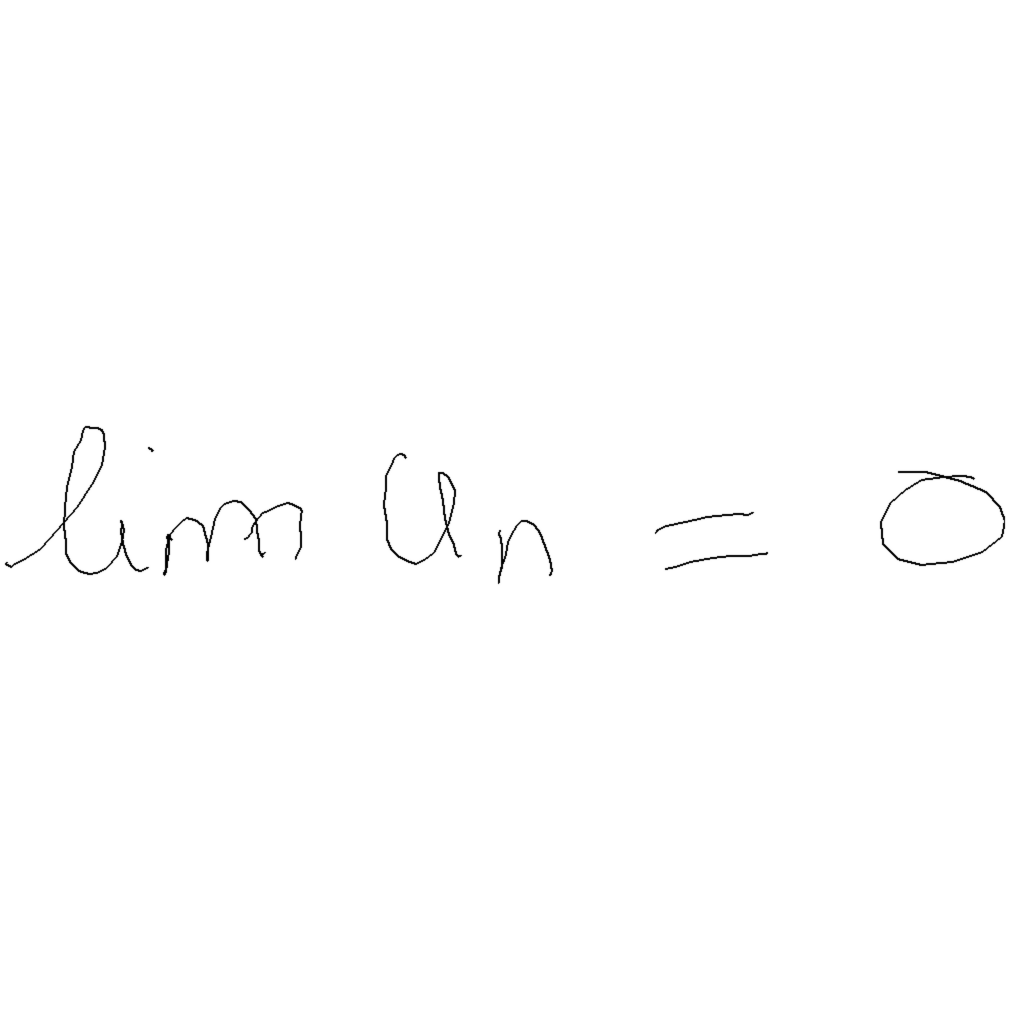 lim Un = 0